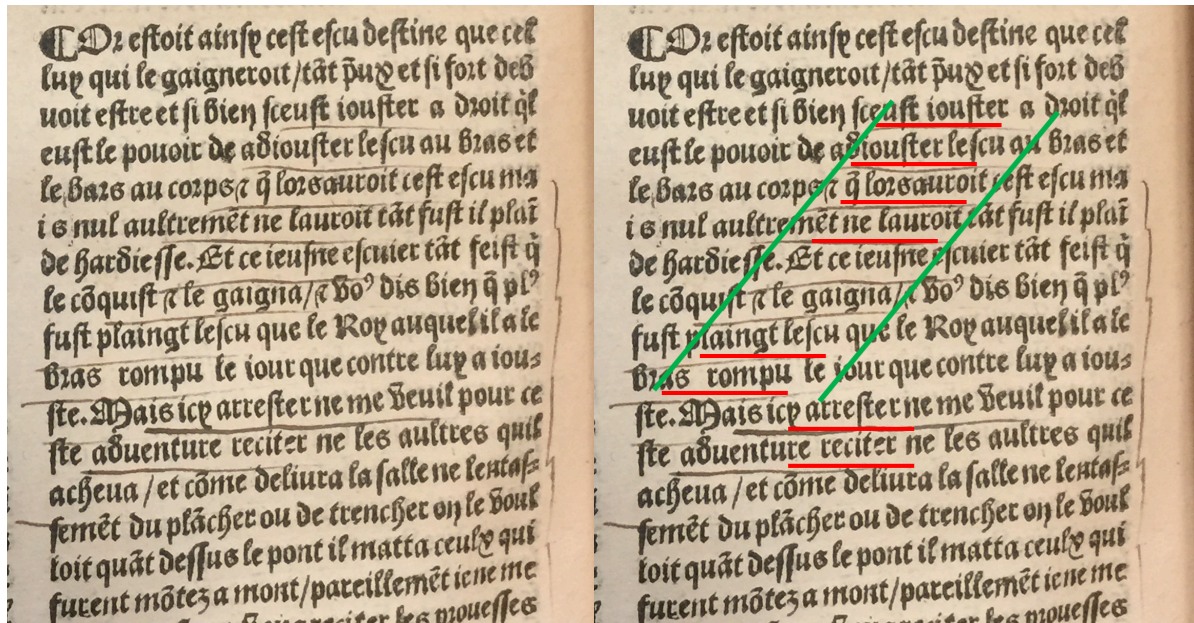 ¶Or estoit ainsy cest escu destine que cel
luy qui le gaigneroit/tāt p̄ux et si fort deb
uoit estre et si bien sceust iouster a droit q̄l
eust le pouoir de adiouster lescu au bras et
le bars au corps⁊ q̄ lors auroit cest escu ma
is nul aultremēt ne lauroit tāt fust il plaī
de hardiesse. Et ce ieusne escuier tāt feist q̄
le cōquist ⁊ le gaigna/⁊ voꝰ dis bien q̄ plꝰ
fust plaingt lescu que le Roy auquel il a le
bras rompu le iour que contre luy a iou-
ste. Mais icy arrester ne me veuil pour ce
ste aduenture reciter ne les aultres quil
acheua /et cōme deliura la salle ne lentas-
semēt du plācher ou de trencher on le voul
loit quāt dessus le pont il matta ceulx qui
furent mōtez a mont/pareillemēt ie ne me
reciter les prouesses
¶Or estoit ainsy cest escu destine que cel
luy qui le gaigneroit/tāt p̄ux et si fort deb
uoit estre et si bien sceust iouster a droit q̄l
eust le pouoir de adiouster lescu au bras et
le bars au corps⁊ q̄ lors auroit cest escu ma
is nul aultremēt ne lauroit tāt fust il plaī
de hardiesse. Et ce ieusne escuier tāt feist q̄
le cōquist ⁊ le gaigna/⁊ voꝰ dis bien q̄ plꝰ
fust plaingt lescu que le Roy auquel il a le
bras rompu le iour que contre luy a iou-
ste. Mais icy arrester ne me veuil pour ce
ste aduenture reciter ne les aultres quil
acheua /et cōme deliura la salle ne lentas-
semēt du plācher ou de trencher on le voul
loit quāt dessus le pont il matta ceulx qui
furent mōtez a mont/pareillemēt ie ne me
reciter les prouesses